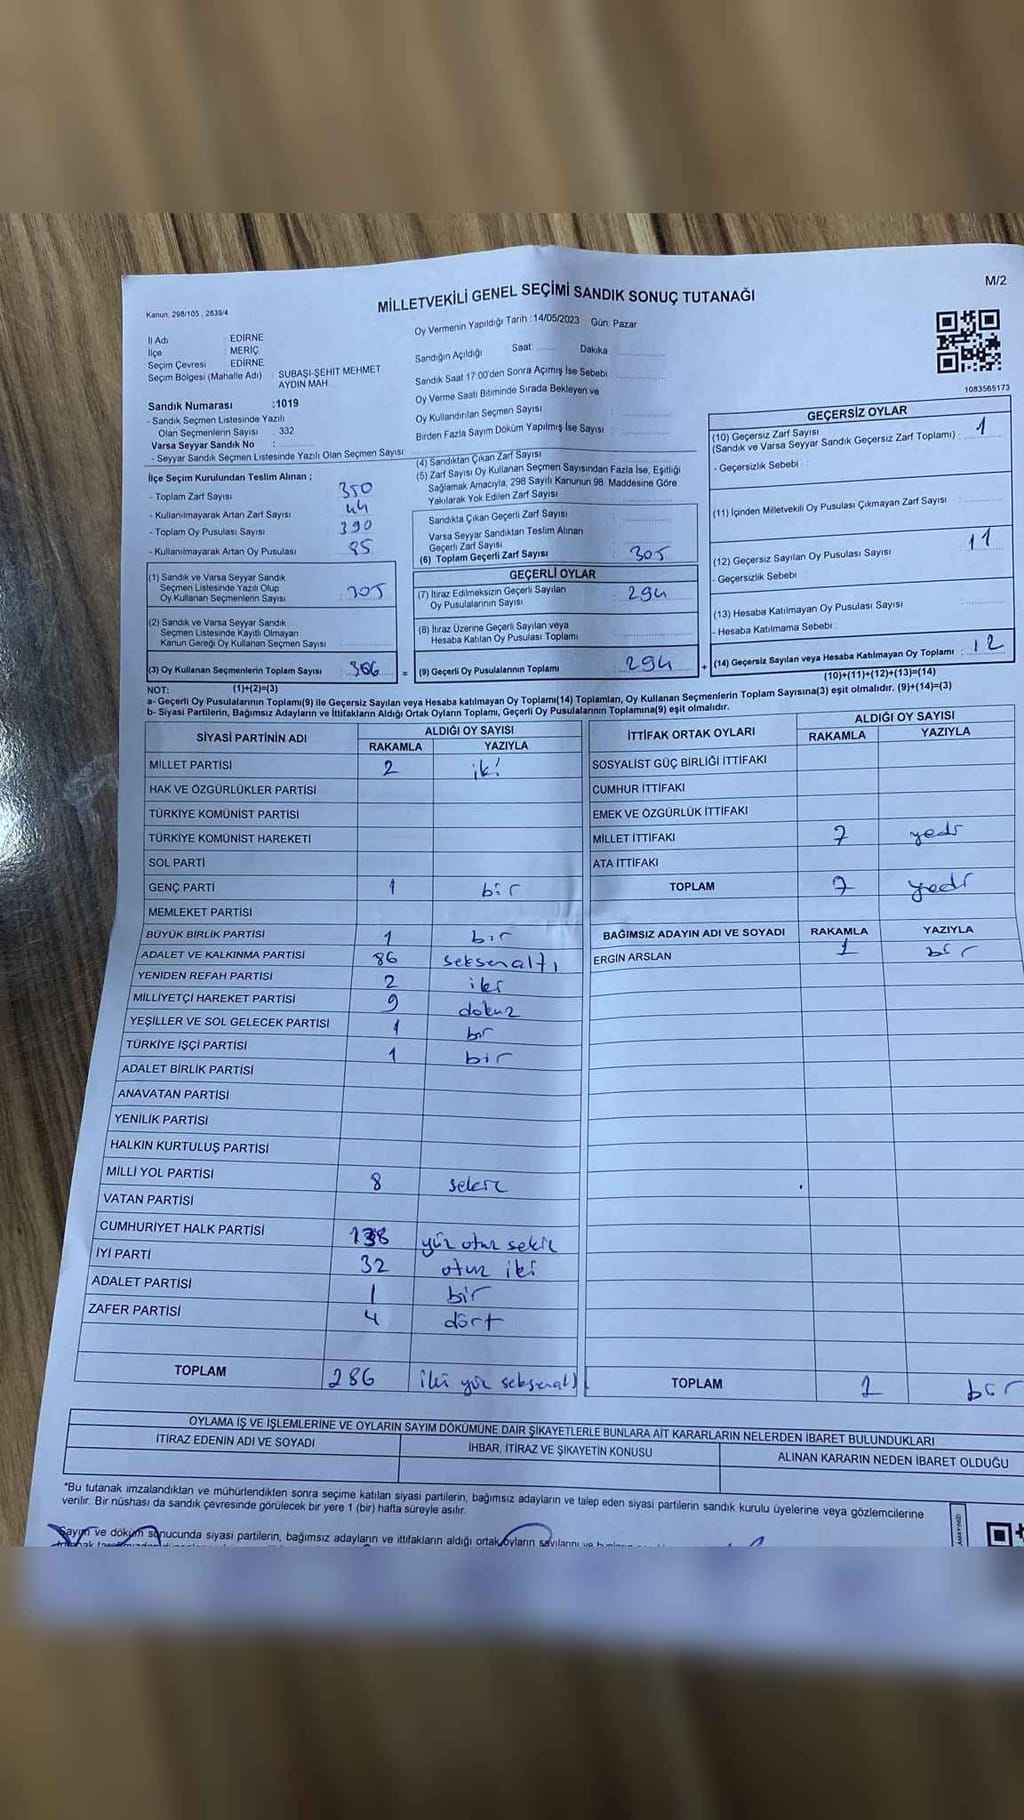 M/2
MİLLETVEKİLİ GENEL SEÇİMİ SANDIK SONUÇ TUTANAĞI
Kanun, 298/105 , 2839/4
İl Adı : EDİRNE
İlçe : MERİÇ
Seçim Çevresi : EDİRNE
Seçim Bölgesi (Mahalle Adı) : SUBAŞI-ŞEHİT MEHMET
AYDIN MAH
Sandık Numarası :1019
- Sandık Seçmen Listesinde Yazılı
Olan Seçmenlerin Sayısı : 332
Varsa Seyyar Sandık No :
- Seyyar Sandık Seçmen Listesinde Yazılı Olan Seçmen Sayısı:
Oy Vermenin Yapıldığı Tarih :14/05/2023 Gün: Pazar
Sandığın Açıldığı Saat: Dakika
Sandık Saat 17:00'den Sonra Açımış İse Sebebi :
Oy Verme Saati Bitiminde Sırada Bekleyen ve
Oy Kullandırılan Seçmen Sayısı :
Birden Fazla Sayım Döküm Yapılmış İse Sayısı :
1083565173
İlçe Seçim Kurulundan Teslim Alınan ;
- Toplam Zarf Sayısı : 350
- Kullanılmayarak Artan Zarf Sayısı : 44
- Toplam Oy Pusulası Sayısı : 390
- Kullanılmayarak Artan Oy Pusulası : 85
(1) Sandık ve Varsa Seyyar Sandık
Seçmen Listesinde Yazılı Olup
Oy Kullanan Seçmenlerin Sayısı 305
(2) Sandık ve Varsa Seyyar Sandık
Seçmen Listesinde Kayıtlı Olmayan
Kanun Gereği Oy Kullanan Seçmen Sayısı
(3) Oy Kullanan Seçmenlerin Toplam Sayısı : 306 =
(1)+(2)=(3)
(4) Sandıktan Çıkan Zarf Sayısı
(5) Zarf Sayısı Oy Kullanan Seçmen Sayısından Fazla İse, Eşitliği
Sağlamak Amacıyla, 298 Sayılı Kanunun 98. Maddesine Göre
Yakılarak Yok Edilen Zarf Sayısı
Sandıkta Çıkan Geçerli Zarf Sayısı
Varsa Seyyar Sandıktan Teslim Alınan
Geçerli Zarf Sayısı
(6) Toplam Geçerli Zarf Sayısı 305
GEÇERLİ OYLAR
(7) İtiraz Edilmeksizin Geçerli Sayılan
Oy Pusulalarının Sayısı : 294
(8) İtiraz Üzerine Geçerli Sayılan veya
Hesaba Katılan Oy Pusulası Toplamı
(9) Geçerli Oy Pusulalarının Toplamı : 294 +
GEÇERSİZ OYLAR
(10) Geçersiz Zarf Sayısı
(Sandık ve Varsa Seyyar Sandık Geçersiz Zarf Toplamı) : 1
- Geçersizlik Sebebi :
(11) İçinden Milletvekili Oy Pusulası Çıkmayan Zarf Sayısı
(12) Geçersiz Sayılan Oy Pusulası Sayısı : 11
- Geçersizlik Sebebi :
(13) Hesaba Katılmayan Oy Pusulası Sayısı :
- Hesaba Katılmama Sebebi :
(14) Geçersiz Sayılan veya Hesaba Katılmayan Oy Toplamı : 12
(10)+(11)+(12)+(13)=(14)
NOT:
a- Geçerli Oy Pusulalarının Toplamı(9) ile Geçersiz Sayılan veya Hesaba katılmayan Oy Toplamı(14) Toplamları, Oy Kullanan Seçmenlerin Toplam Sayısına(3) eşit olmalıdır. (9)+(14)=(3)
b- Siyasi Partilerin, Bağımsız Adayların ve İttifakların Aldığı Ortak Oyların Toplamı, Geçerli Oy Pusulalarının Toplamına(9) eşit olmalıdır.
SİYASİ PARTİNİN ADI ALDIĞI OY SAYISI
RAKAMLA YAZIYLA
MİLLET PARTİSİ 2 iki
HAK VE ÖZGÜRLÜKLER PARTİSİ
TÜRKİYE KOMÜNİST PARTİSİ
TÜRKİYE KOMÜNİST HAREKETİ
SOL PARTİ
GENÇ PARTİ 1 bir
MEMLEKET PARTİSİ
BÜYÜK BİRLİK PARTİSİ 1 bir
ADALET VE KALKINMA PARTİSİ 86 seksenaltı
YENİDEN REFAH PARTİSİ 2 iki
MİLLİYETÇİ HAREKET PARTİSİ 9 dokuz
YEŞİLLER VE SOL GELECEK PARTİSİ 1 bir
TÜRKİYE İŞÇİ PARTİSİ 1 bir
ADALET BİRLİK PARTİSİ
ANAVATAN PARTİSİ
YENİLİK PARTİSİ
HALKIN KURTULUŞ PARTİSİ
MİLLİ YOL PARTİSİ 8 sekiz
VATAN PARTİSİ
CUMHURİYET HALK PARTİSİ 138 yüz otuz sekiz
İYİ PARTİ 32 otuz iki
ADALET PARTİSİ 1 bir
ZAFER PARTİSİ 4 dört
TOPLAM 286 iki yüz seksenaltı
İTTİFAK ORTAK OYLARI ALDIĞI OY SAYISI
RAKAMLA YAZIYLA
SOSYALİST GÜÇ BİRLİĞİ İTTİFAKI
CUMHUR İTTİFAKI
EMEK VE ÖZGÜRLÜK İTTİFAKI
MİLLET İTTİFAKI 7 yedi
ATA İTTİFAKI
TOPLAM 7 yedi
BAĞIMSIZ ADAYIN ADI VE SOYADI RAKAMLA YAZIYLA
ERGİN ARSLAN 1 bir
TOPLAM 1 bir
OYLAMA İŞ VE İŞLEMLERİNE VE OYLARIN SAYIM DÖKÜMÜNE DAİR ŞİKAYETLERLE BUNLARA AİT KARARLARIN NELERDEN İBARET BULUNDUKLARI
İTİRAZ EDENİN ADI VE SOYADI İHBAR, İTİRAZ VE ŞİKAYETİN KONUSU ALINAN KARARIN NEDEN İBARET OLDUĞU
*Bu tutanak imzalandıktan ve mühürlendikten sonra seçime katılan siyasi partilerin, bağımsız adayların ve talep eden siyasi partilerin sandık kurulu üyelerine veya gözlemcilerine
verilir. Bir nüshası da sandık çevresinde görülecek bir yere 1 (bir) hafta süreyle asılır.
Sayım ve döküm sonucunda siyasi partilerin, bağımsız adayların ve ittifakların aldığı ortak oyların sayılarını ve